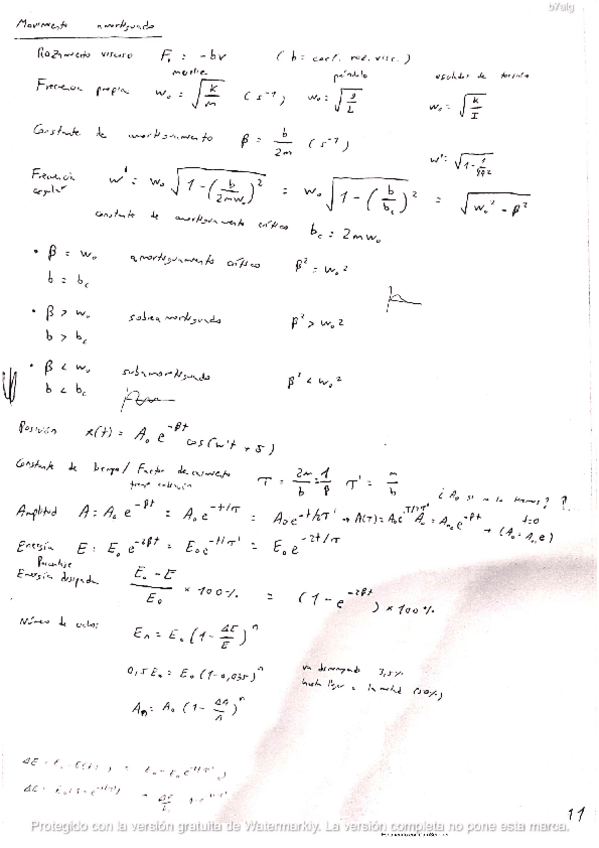 b7ulg
Movimiento amortiguado
Rozamiento viscoso F_r = -bv (b = coef. roz. visc.)
muelle péndulo oscilador de torsión
Frecuencia propia w₀ = √(k/m) (s⁻¹) w₀ = √(g/L) w₀ = √(k/I)
Constante de amortiguamiento β = b/2m (s⁻¹)
Frecuencia angular w' = w₀ √(1-(b/2mw₀)²) = w₀ √(1-(b/b_c)²) = √(w₀² - β²)
constante de amortiguamiento crítico b_c = 2mw₀
• β = w₀ amortiguamiento crítico β² = w₀²
b = b_c
• β > w₀ sobreamortiguado β² > w₀²
b > b_c
• β < w₀ subamortiguado β² < w₀²
b < b_c
Posición x(t) = A₀ e^(-βt) cos(w't + δ)
Constante de tiempo / Factor de τ = 2m/b = 1/β τ' = m/b
Amplitud A = A₀ e^(-βt) = A₀ e^(-t/τ) = A₀ e^(-t/2τ')
Energía E = E₀ e^(-2βt) = E₀ e^(-t/τ') = E₀ e^(-2t/τ)
Porcentaje
Energía disipada (E₀ - E)/E₀ × 100% = (1 - e^(-2βt)) × 100%
Número de ciclos E_n = E₀ (1 - ΔE/E)^n
0,5E₀ = E₀ (1-0,035)^n 3,5%
hasta llegar a la mitad (50%)
A_n = A₀ (1 - ΔA/A)^n
11
Protegido con la versión gratuita de Watermarkly. La versión completa no pone esta marca.